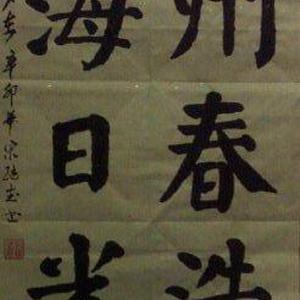 州春浩
海日光
辛卯年宋